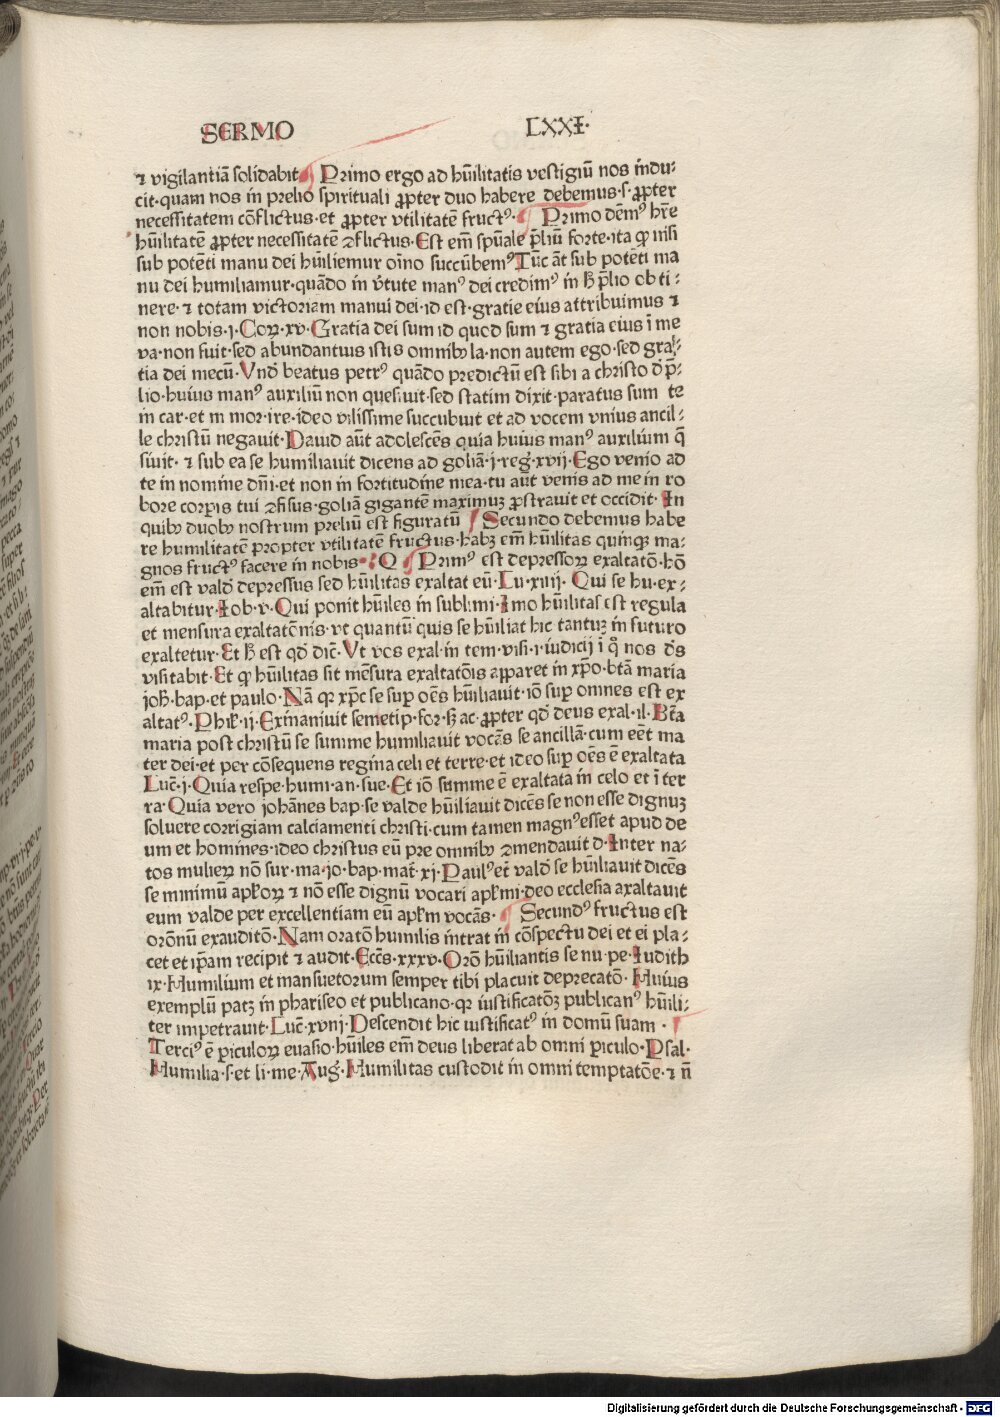 SERMO LXXI·
⁊ vigilantiā solidabit Primo ergo ad hūilitatis vestigiū nos indu⸗
cit·quam nos in prelio spirituali ꝓpter duo habere debemus·s·ꝓpter
necessitatem cōflictus·et ꝓpter vtilitatē fructꝰ· Primo dēmꝰ hr̄e
hūilitatē ꝓpter necessitatē ꝯflictus·Est em̄ spūale p̄liū forte·ita ꝙ nisi
sub potēti manu dei hūiliemur oīno succūbemꝰ Tūc āt sub potēti ma
nu dei humiliamur·quādo in v̄tute manꝰ dei credimꝰ in h̄ p̄lio obti⸗
nere·⁊ totam victoriam manui dei·id est·gratie eius attribuimus ⁊
non nobis·i·Coꝝ·xv·Gratia dei sum id quod sum ⁊ gratia eius ī me
va·non fuit·sed abundantius istis omnibꝰ la·non autem ego·sed gra⸗
tia dei mecū·Vnd̄ beatus petrꝰ quādo predictū est sibi a christo d̄ p̄⸗
lio·huius manꝰ auxiliū non quesiuit·sed statim dixit·paratus sum te
in car·et in mor·ire·ideo vilissime succubuit et ad vocem vnius ancil⸗
le christū negauit·Dauid aūt adolescēs quia huius manꝰ auxilium q̄
siuit·⁊ sub ea se humiliauit dicens ad goliā·j·reḡ·xvij·Ego venio ad
te in nomine dn̄i·et non in fortitudine mea·tu aūt venis ad me in ro
bore corpis tui ꝯfisus·goliā gigantē maximuꝫ ꝓstrauit et occidit·In
quibꝰ duobꝰ nostrum preliū est figuratū Secundo debemus habe
re humilitatē propter vtilitatē fructus·habꝫ em̄ hūilitas quinqꝫ ma⸗
gnos fructꝰ facere in nobis· Q Primꝰ est depressoꝝ exaltatō·hō
em̄ est vald̄ depressus sed hūilitas exaltat eū·Lu·xiiij·Qui se hu·ex⸗
altabitur·Iob·v·Qui ponit hūiles in sublimi·Imo hūilitas est regula
et mensura exaltatōnis·vt quantū quis se hūiliat hic tantuꝫ in futuro
exaltetur·Et h̄ est qd̄ dic̄·Vt vos exal·in tem·visi·i·iudicij ī q̊ nos d̄s
visitabit·Et ꝙ hūilitas sit mēsura exaltatōis apparet in xp̄o·btā maria
joh̄·bap·et paulo·Nā qꝛ xp̄c se suꝑ oēs hūiliauit·iō suꝑ omnes est ex
altatꝰ·Phil̄·ij·Exinaniuit semetip·for·s̄ ac·ꝓpter qd̄ deus exal·il·Btā
maria post christū se summe humiliauit vocās se ancillā·cum eēt ma
ter dei·et per cōsequens regina celi et terre·et ideo suꝑ oēs ē exaltata
Luc̄·j·Quia respe·humi·an·sue·Et iō summe ē exaltata in celo et ī ter
ra·Quia vero johānes bap·se valde hūiliauit dicēs se non esse dignuꝫ
soluere corrigiam calciamenti christi·cum tamen magnꝰ esset apud de
um et homines·ideo christus eū pre omnibꝰ ꝯmendauit d·Inter na⸗
tos mulieꝝ nō sur·ma·jo·bap·mat̄·xj·Paulꝰ et̄ vald̄ se hūiliauit dicēs
se minimū apl̄oꝝ ⁊ nō esse dignū vocari apl̄m·deo ecclesia axaltauit
eum valde per excellentiam eū apl̄m vocās· Secundꝰ fructus est
orōnū exauditō·Nam oratō humilis intrat in cōspectu dei et ei pla⸗
cet et ip̄am recipit ⁊ audit·Ecc̄s·xxxv·Orō hūiliantis se nu·pe·Iudith
ix·Humilium et mansuetorum semper tibi placuit deprecatō·Huius
exemplū patꝫ in phariseo et publicano·qꝛ iustificatōꝫ publicanꝰ hūili⸗
ter impetrauit·Luc̄·xviij·Descendit hic iustificatꝰ in domū suam·
Terciꝰ ē ꝑiculoꝝ euasio·hūiles em̄ deus liberat ab omni ꝑiculo·Psal·
Humilia·s·et li·me·Auḡ·Humilitas custodit in omni temptatōe·⁊ n̄
Digitalisierung gefördert durch die Deutsche Forschungsgemeinschaft - DFG